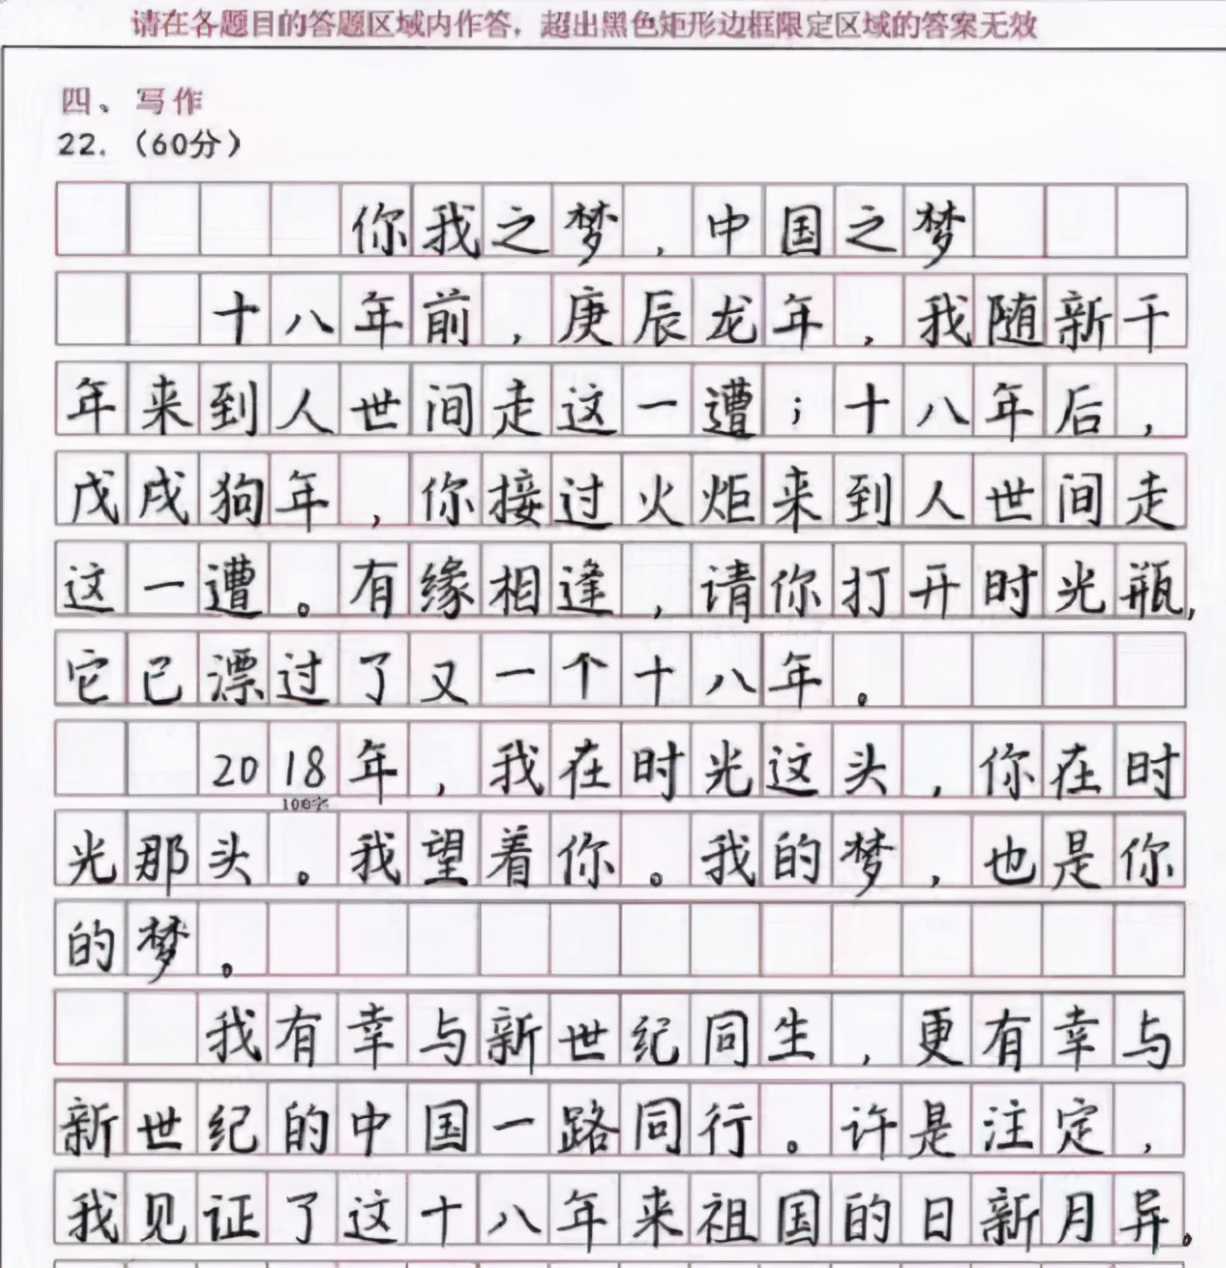 请在各题目的答题区域内作答，超出黑色矩形边框限定区域的答案无效
四、写作
22.（60分）
你我之梦，中国之梦
十八年前，庚辰龙年，我随新千
年来到人世间走这一遭；十八年后，
戊戌狗年，你接过火炬来到人世间走
这一遭。有缘相逢，请你打开时光瓶，
它已漂过了又一个十八年。
2018年，我在时光这头，你在时
100字
光那头。我望着你。我的梦，也是你
的梦。
我有幸与新世纪同生，更有幸与
新世纪的中国一路同行。许是注定，
我见证了这十八年来祖国的日新月异。